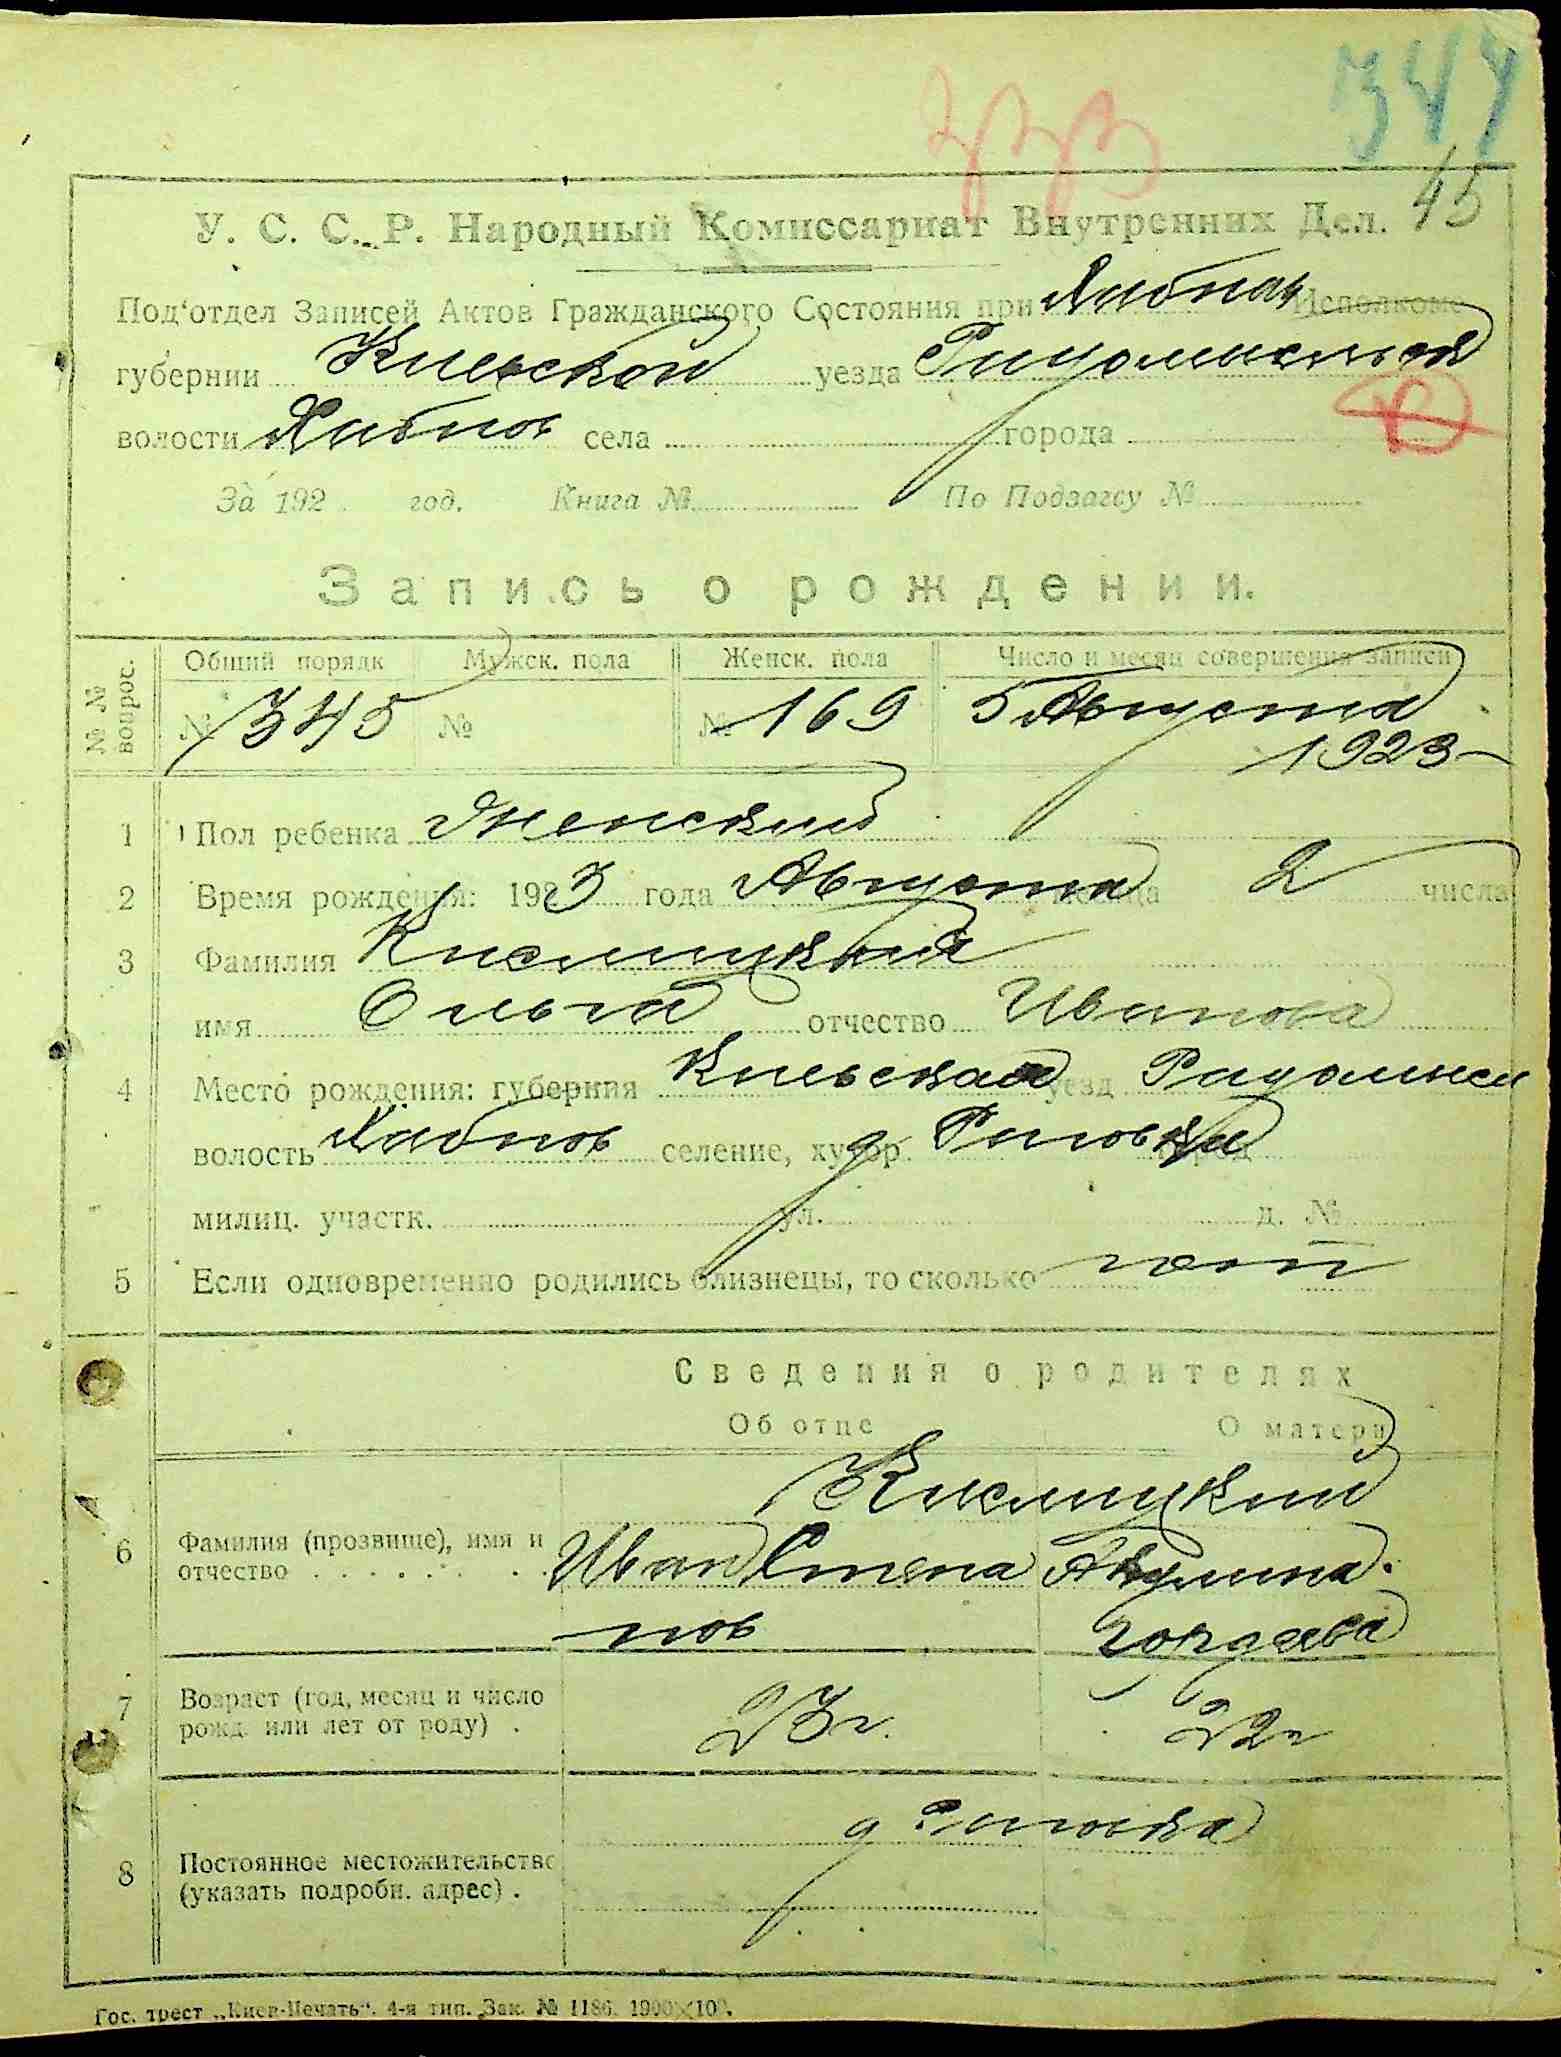 344
333
45
У. С. С. Р. Народный Комиссариат Внутренних Дел.
Под‘отдел Записей Актов Гражданского Состояния при Хабнов Исполкоме
губернии Киевской уезда Радомысльск
волости Хабнов села города
За 192 год. Книга № По Подзагсу №
Запись о рождении.
№ № вопрос.
Общий порядк Мужск. пола Женск. пола Число и месяц совершения записи
№ 345 № № 169 5 Августа
1923
1 Пол ребенка Женский
2 Время рождения: 1923 года Августа месяца 2 числа
3 Фамилия Кислицкая
имя Ольга отчество Иванова
4 Место рождения: губерния Киевская уезд Радомысл
волость Хабнов селение, хутор д город
милиц. участк. ул. д. №
5 Если одновременно родились близнецы, то сколько
Сведения о родителях
Об отце О матери
Кислицкий
6 Фамилия (прозвище), имя и отчество Иван Степа Акулина
нов Гордеева
7 Возраст (год, месяц и число рожд. или лет от роду) . 23 г. 22 г
8 Постоянное местожительство (указать подробн. адрес) . д
Гос. трест „Киев-Печать“. 4-я тип. Зак. № 1186. 1900×100.